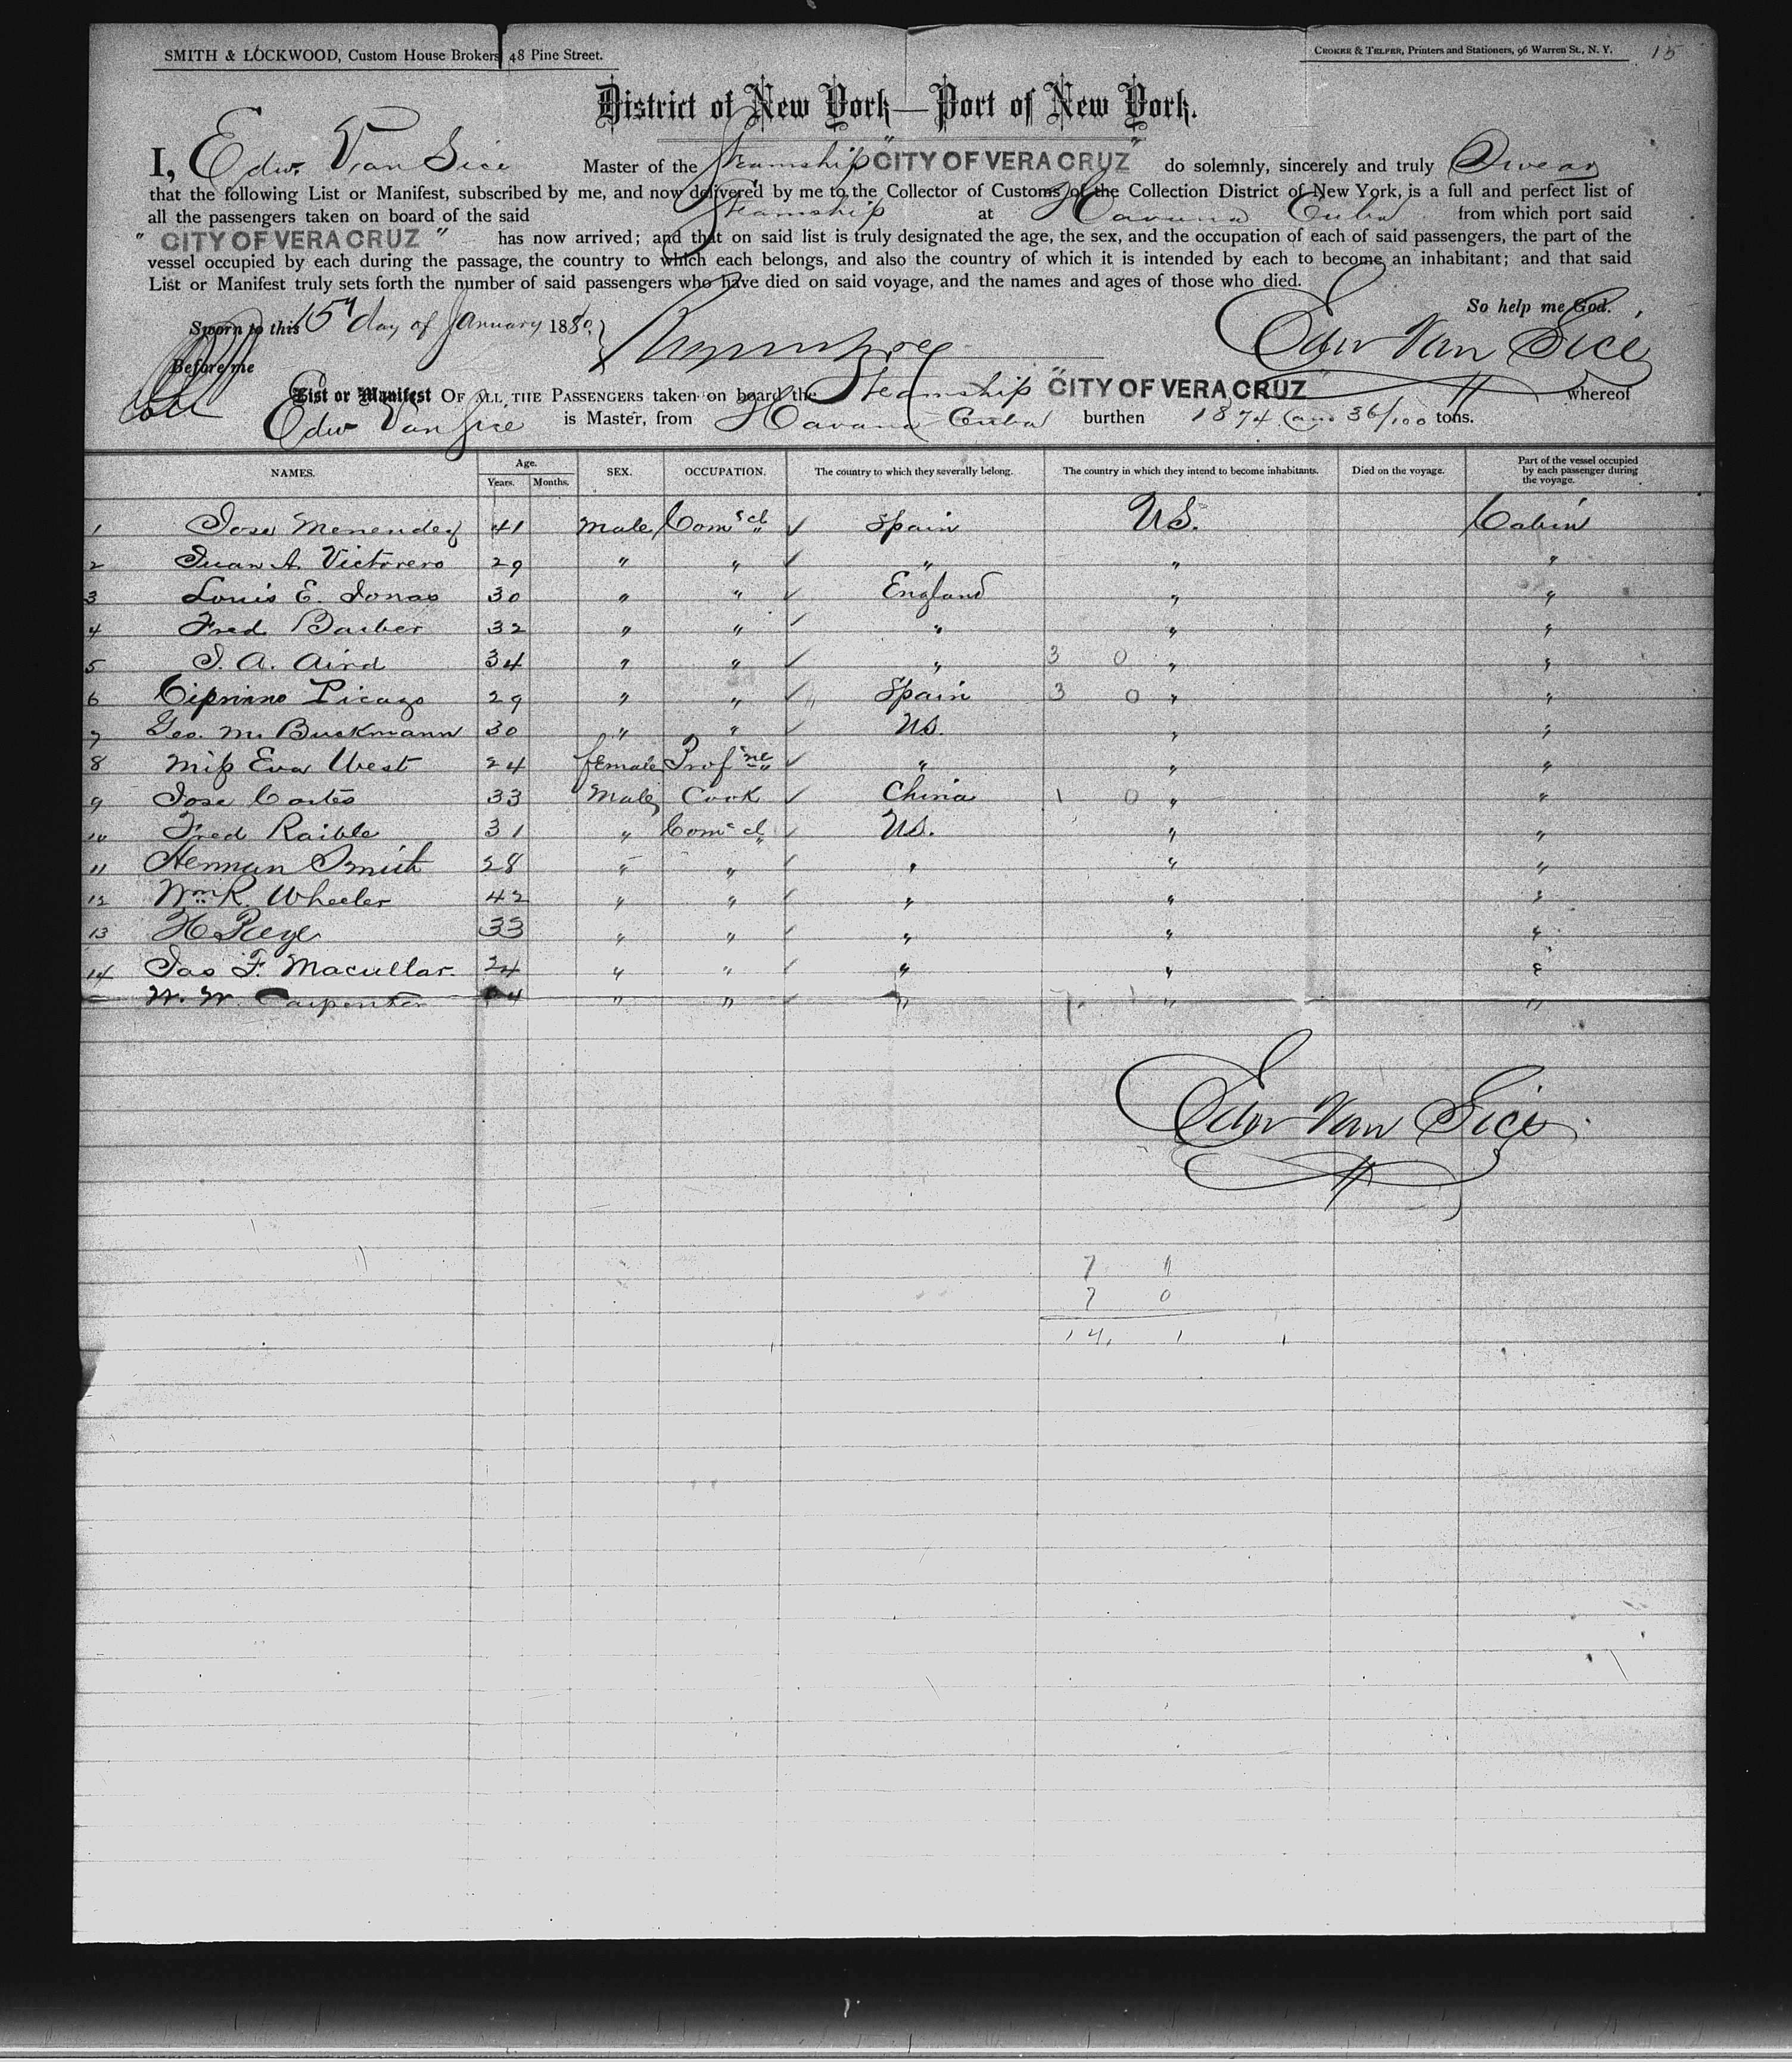 SMITH & LOCKWOOD, Custom House Brokers, 48 Pine Street.
CROKER & TELFER, Printers and Stationers, 96 Warren St., N. Y.
15
District of New York—Port of New York.
I, Edw. Van Sice Master of the Steamship "CITY OF VERA CRUZ" do solemnly, sincerely and truly Swear
that the following List or Manifest, subscribed by me, and now delivered by me to the Collector of Customs of the Collection District of New York, is a full and perfect list of
all the passengers taken on board of the said Steamship at Havana Cuba from which port said
"CITY OF VERA CRUZ" has now arrived; and that on said list is truly designated the age, the sex, and the occupation of each of said passengers, the part of the
vessel occupied by each during the passage, the country to which each belongs, and also the country of which it is intended by each to become an inhabitant; and that said
List or Manifest truly sets forth the number of said passengers who have died on said voyage, and the names and ages of those who died.
So help me God.
Sworn to this 15th day of January 1880,
Edw Van Sice
Before me
List or Manifest OF ALL THE PASSENGERS taken on board the Steamship "CITY OF VERA CRUZ" whereof
Edw Van Sice is Master, from Havana Cuba burthen 1874 and 36/100 tons.
NAMES. Age. Years. Months. SEX. OCCUPATION. The country to which they severally belong. The country in which they intend to become inhabitants. Died on the voyage. Part of the vessel occupied by each passenger during the voyage.
1 Jose Menendez 41 Male Com'cl Spain U.S. Cabin
2 Juan A. Victorero 29 " " " " "
3 Louis E. Jonas 30 " " England " "
4 Fred Barber 32 " " " " "
5 J. A. Aird 34 " " " 3 0 " "
6 Cipriano Picazo 29 " " Spain 3 0 " "
7 Geo. M. Buskmann 30 " " U.S. " "
8 Miss Eva West 24 female Prof'ne " " "
9 Jose Cortes 33 Male Cook China 1 0 " "
10 Fred Raible 31 " Com'cl U.S. " "
11 Herman Smith 28 " " " " "
12 Wm R. Wheeler 42 " " " " "
13 H 33 " " " " "
14 Jas F. Macullar 24 " " " " "
W. W. Carpenter " " " " "
Edw Van Sice
7 1
7 0
14 1 1